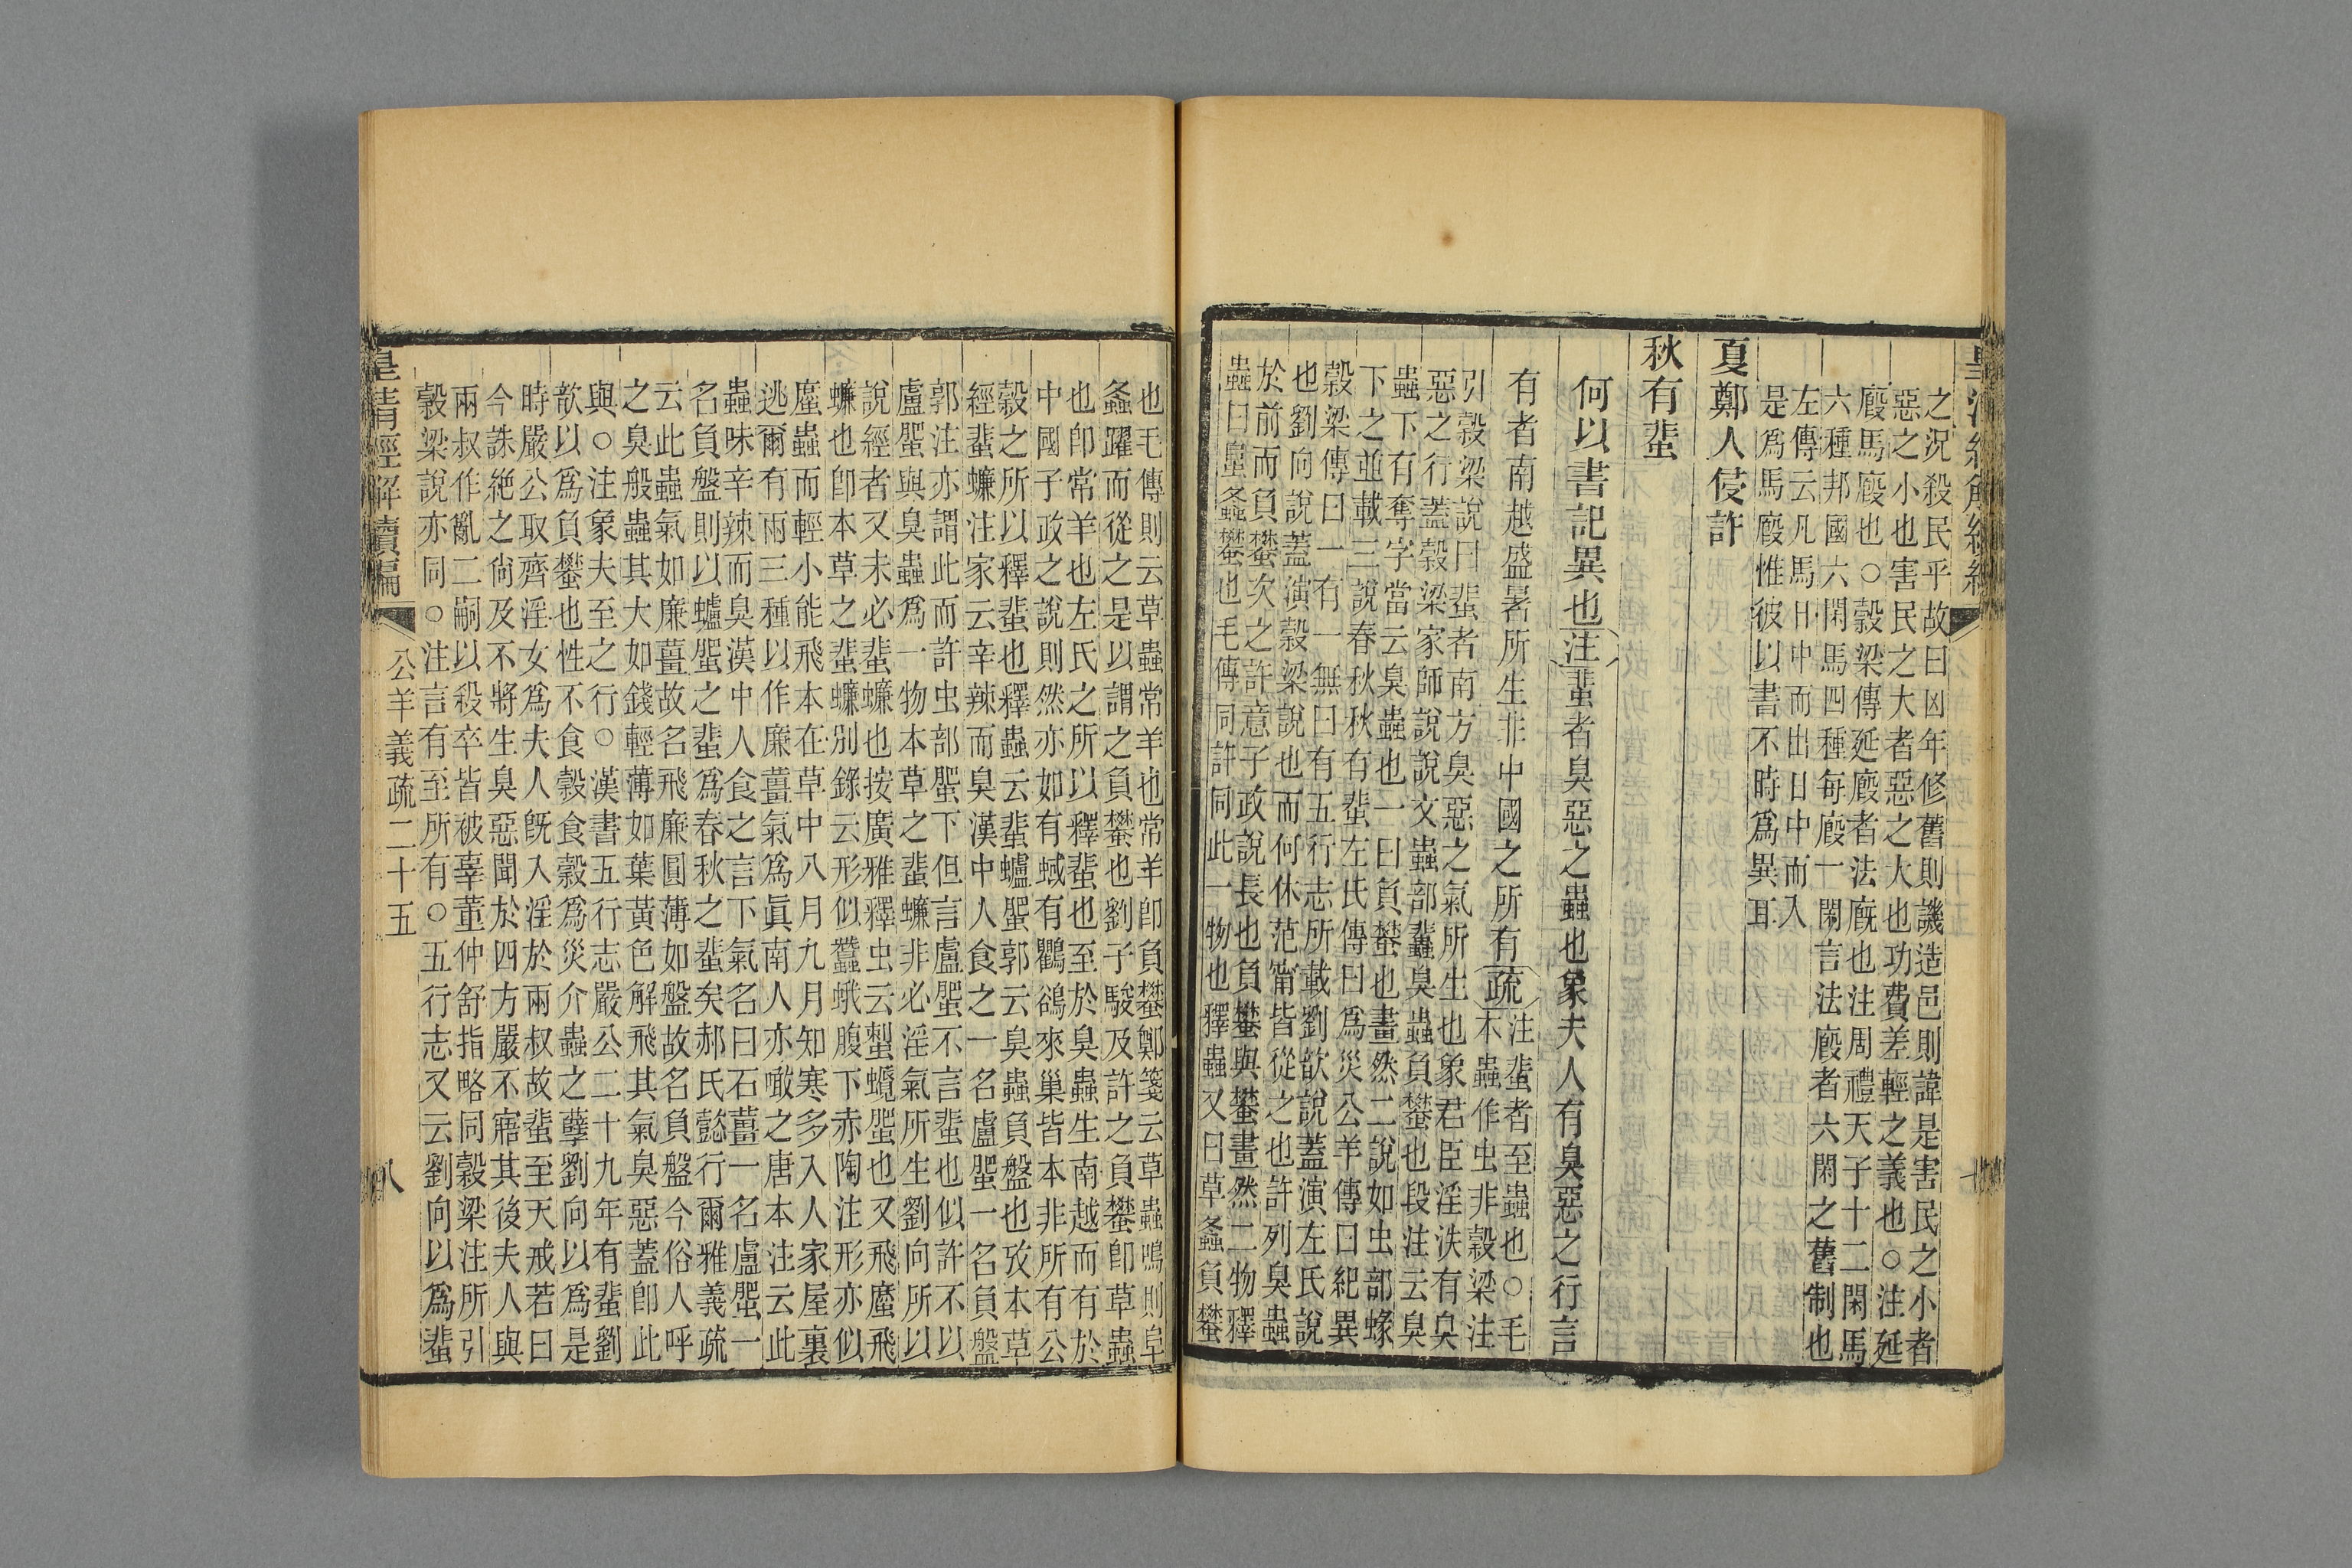 之況殺民乎故曰凶年修舊則譏造邑則諱是害民之小者
惡之小也害民之大者惡之大也功費差輕之義也○注延
廄馬廄也○穀梁傳延廄者法廄也注周禮天子十二閑馬
六種邦國六閑馬四種每廄一閑言法廄者六閑之舊制也
左傳云凡馬日中而出日中而入
是爲馬廄惟彼以書不時爲異耳
夏鄭人侵許
秋有蜚
何以書記異也注蜚者臭惡之蟲也象夫人有臭惡之行言
有者南越盛暑所生非中國之所有疏
注蜚者至蟲也○毛
本蟲作虫非穀梁注
引穀梁說曰蜚者南方臭惡之氣所生也象君臣淫泆有臭
惡之行蓋穀梁家師說說文蟲部蠹臭蟲負蠜也段注云臭
蟲下有奪字當云臭蟲也一曰負蠜也畫然二說如虫部蝝
下之並載三說春秋秋有蜚左氏傳曰爲災公羊傳曰紀異
穀梁傳曰一有一無曰有五行志所載劉歆說蓋演左氏說
也劉向說蓋演穀梁說也而何休范甯皆從之也許列臭蟲
於前而負蠜次之許意子政說長也負蠜與蠜畫然二物釋
蟲曰𧒂螽蠜也毛傳同許同此一物也釋蟲又曰草螽負蠜
也毛傳則云草蟲常羊也常羊卽負蠜鄭箋云草蟲鳴則阜
螽躍而從之是以謂之負蠜也劉子駿及許之負蠜卽草蟲
也卽常羊也左氏之所以釋蜚也至於臭蟲生南越而有於
中國子政之說則然亦如有蜮有鸜鵒來巢皆本非所有公
穀之所以釋蜚也釋蟲云蜚蠦蜰郭云臭蟲負盤也攷本草
經蜚蠊注家云辛辣而臭漢中人食之一名盧蜰一名負盤
郭注亦謂此而許虫部蜰下但言盧蜰不言蜚也似許不以
盧蜰與臭蟲爲一物本草之蜚蠊非必淫氣所生劉向所以
說經者又未必蜚蠊也按廣雅釋虫云蟴蟅蜰也又飛蟅飛
蠊也卽本草之蜚蠊別錄云形似蠶蛾腹下赤陶注形亦似
蟅蟲而輕小能飛本在草中八月九月知寒多入人家屋裏
逃爾有兩三種以作廉薑氣爲眞南人亦噉之唐本注云此
蟲味辛辣而臭漢中人食之言下氣名曰石薑一名盧蜰一
名負盤則以蠦蜰之蜚爲春秋之蜚矣郝氏懿行爾雅義疏
云此蟲氣如廉薑故名飛廉圓薄如盤故名負盤今俗人呼
之臭般蟲其大如錢輕薄如葉黃色解飛其氣臭惡蓋卽此
與○注象夫至之行○漢書五行志嚴公二十九年有蜚劉
歆以爲負蠜也性不食穀食穀爲災介蟲之孽劉向以爲是
時嚴公取齊淫女爲夫人旣入淫於兩叔故蜚至天戒若曰
今誅絶之尙及不將生臭惡聞於四方嚴不寤其後夫人與
兩叔作亂二嗣以殺卒皆被辜董仲舒指略同穀梁注所引
穀梁說亦同○注言有至所有○五行志又云劉向以爲蜚
皇淸經解續編
公羊義疏二十五
八